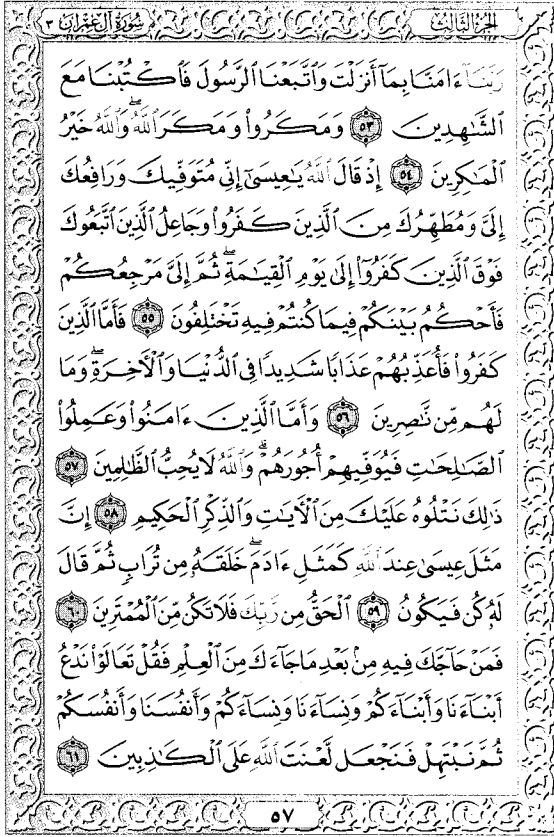 الجزء الثالث
سورة آل عمران ٣
رَبَّنَآ ءَامَنَّا بِمَآ أَنزَلْتَ وَٱتَّبَعْنَا ٱلرَّسُولَ فَٱكْتُبْنَا مَعَ
ٱلشَّٰهِدِينَ ٥٣ وَمَكَرُوا۟ وَمَكَرَ ٱللَّهُ ۖ وَٱللَّهُ خَيْرُ
ٱلْمَٰكِرِينَ ٥٤ إِذْ قَالَ ٱللَّهُ يَٰعِيسَىٰٓ إِنِّى مُتَوَفِّيكَ وَرَافِعُكَ
إِلَىَّ وَمُطَهِّرُكَ مِنَ ٱلَّذِينَ كَفَرُوا۟ وَجَاعِلُ ٱلَّذِينَ ٱتَّبَعُوكَ
فَوْقَ ٱلَّذِينَ كَفَرُوٓا۟ إِلَىٰ يَوْمِ ٱلْقِيَٰمَةِ ۖ ثُمَّ إِلَىَّ مَرْجِعُكُمْ
فَأَحْكُمُ بَيْنَكُمْ فِيمَا كُنتُمْ فِيهِ تَخْتَلِفُونَ ٥٥ فَأَمَّا ٱلَّذِينَ
كَفَرُوا۟ فَأُعَذِّبُهُمْ عَذَابًا شَدِيدًا فِى ٱلدُّنْيَا وَٱلْءَاخِرَةِ ۖ وَمَا
لَهُم مِّن نَّٰصِرِينَ ٥٦ وَأَمَّا ٱلَّذِينَ ءَامَنُوا۟ وَعَمِلُوا۟
ٱلصَّٰلِحَٰتِ فَيُوَفِّيهِمْ أُجُورَهُمْ ۗ وَٱللَّهُ لَا يُحِبُّ ٱلظَّٰلِمِينَ ٥٧
ذَٰلِكَ نَتْلُوهُ عَلَيْكَ مِنَ ٱلْءَايَٰتِ وَٱلذِّكْرِ ٱلْحَكِيمِ ٥٨ إِنَّ
مَثَلَ عِيسَىٰ عِندَ ٱللَّهِ كَمَثَلِ ءَادَمَ ۖ خَلَقَهُۥ مِن تُرَابٍ ثُمَّ قَالَ
لَهُۥ كُن فَيَكُونُ ٥٩ ٱلْحَقُّ مِن رَّبِّكَ فَلَا تَكُن مِّنَ ٱلْمُمْتَرِينَ ٦٠
فَمَنْ حَآجَّكَ فِيهِ مِنۢ بَعْدِ مَا جَآءَكَ مِنَ ٱلْعِلْمِ فَقُلْ تَعَالَوْا۟ نَدْعُ
أَبْنَآءَنَا وَأَبْنَآءَكُمْ وَنِسَآءَنَا وَنِسَآءَكُمْ وَأَنفُسَنَا وَأَنفُسَكُمْ
ثُمَّ نَبْتَهِلْ فَنَجْعَل لَّعْنَتَ ٱللَّهِ عَلَى ٱلْكَٰذِبِينَ ٦١
٥٧